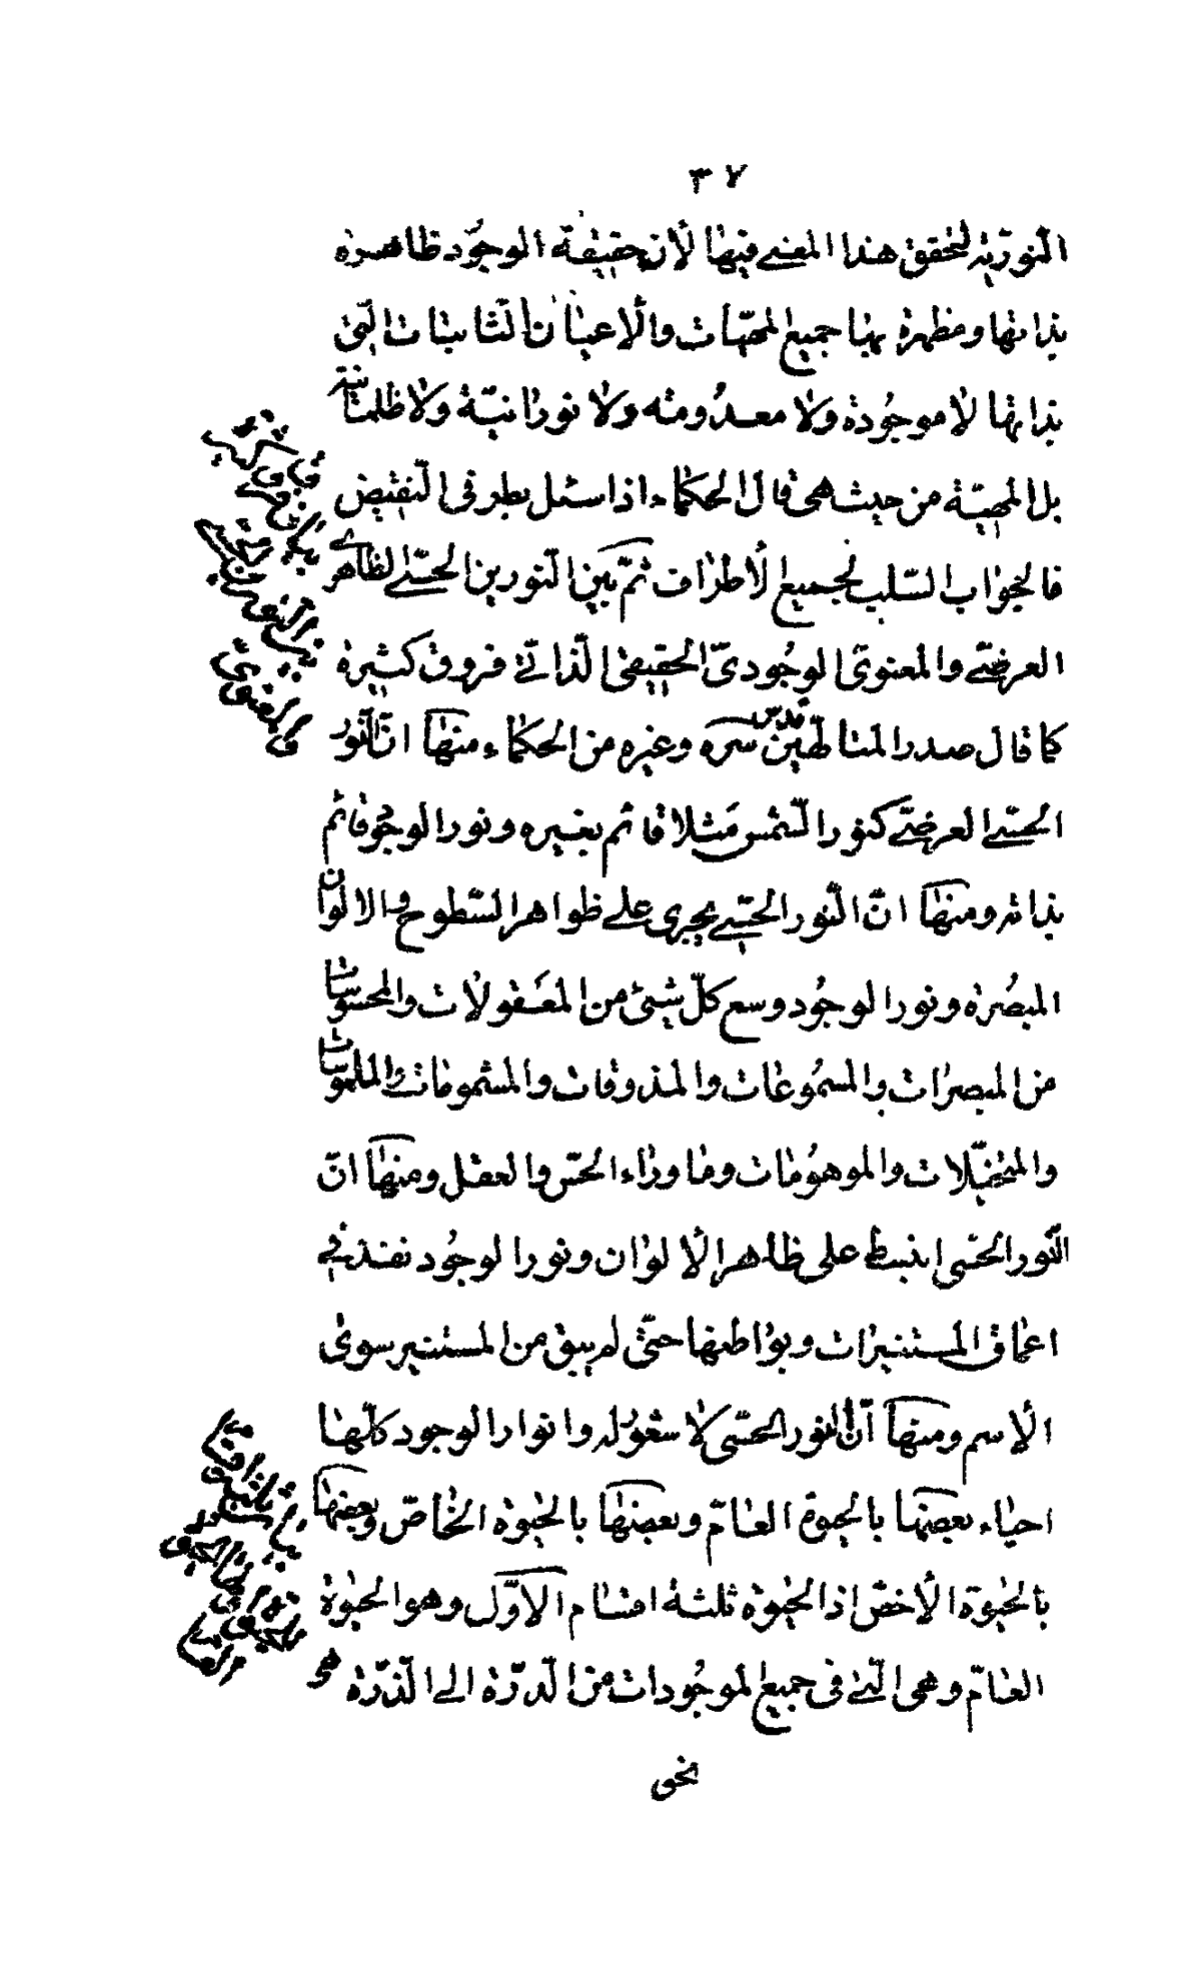 ٣٧
النّوريّه لتحقق هذا المعنى فيها لأن حقيقة الوجود ظاهره
بذاتها ومظهرة بها جميع المهيّات والأعيان الثابتات الّتى
بذاتها لا موجودة ولا معدومة ولا نورانيّة ولا ظلمانيّة
بل المهيّة من حيث هى قال الحكماء اذا سئل بطرفى النّقيض
فالجواب السّلب لجميع الأطراف ثمّ بين النّورين الحسّى الظاهرى
العرضىّ والمعنوىّ الوجودىّ الحقيقى الذّاتى فروق كثيرة
كما قال صدر المتالهّين قدس سره وغيره من الحكماء منها انّ النّور
الحسّى العرضىّ كنور الشّمس مثلا قائم بغيره ونور الوجود قائم
بذاته ومنها انّ النّور الحسّى يجرى على ظواهر السّطوح والالوان
المبصره ونور الوجود وسع كلّ شيئ من المعقولات والمحسوسات
من المبصرات والمسموعات والمذوقات والمشمومات والملموسات
والمتخيّلات والموهومات وما وراء الحسّ والعقل ومنها انّ
النّور الحسى انبسط على ظاهر الألوان ونور الوجود نفذ فى
اعماق المستنيرات وبواطنها حتّى لم يبق من المستنير سوى
الأسم ومنها انّ النور الحسّى لا شعور له وانوار الوجود كلّها
احياء بعضها بالحيوة العامّ وبعضها بالحيوة الخاصّ وبعضها
بالحيوة الأخصّ اذ الحيوة ثلثة اقسام الاوّل وهو الحيوة
العامّ وهى الّتى فى جميع الموجودات من الدرّة الى الذّرّة
نحو